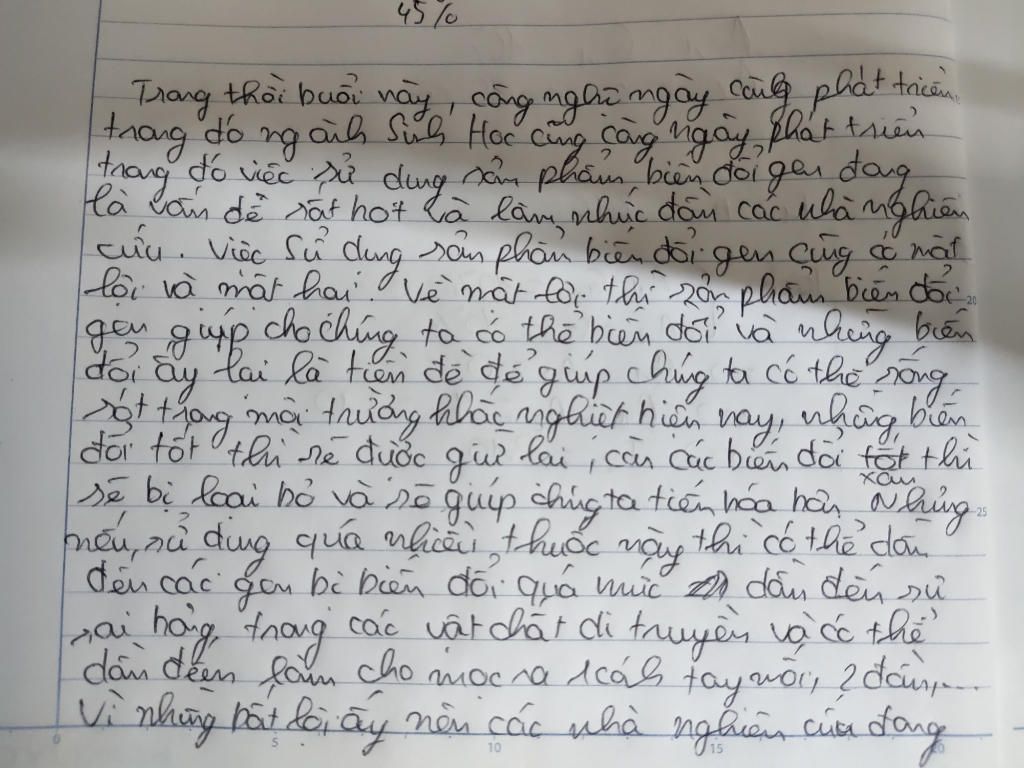 45%
Trong thời buổi này, công nghệ ngày càng phát triển
trong đó ngành Sinh Học cũng càng ngày phát triển
trong đó việc sử dụng sản phẩm biến đổi gen đang
là vấn đề rất hot và làm nhức đầu các nhà nghiên
cứu. Việc sử dụng sản phẩm biến đổi gen cũng có mặt
lợi và mặt hại. Về mặt lợi thì sản phẩm biến đổi
gen giúp cho chúng ta có thể biến đổi và những biến
đổi ấy lại là tiền đề để giúp chúng ta có thể sống
sót trong môi trường khắc nghiệt hiện nay, những biến
đổi tốt thì sẽ được giữ lại, còn các biến đổi xấu thì
sẽ bị loại bỏ và sẽ giúp chúng ta tiến hóa hơn. Nhưng
nếu sử dụng quá nhiều thuốc này thì có thể dẫn
đến các gen bị biến đổi quá mức dẫn đến sự
sai hỏng trong các vật chất di truyền và có thể
dẫn đến làm cho mọc ra 1 cánh tay mới, 2 đầu,...
Vì những bất lợi ấy nên các nhà nghiên cứu đang